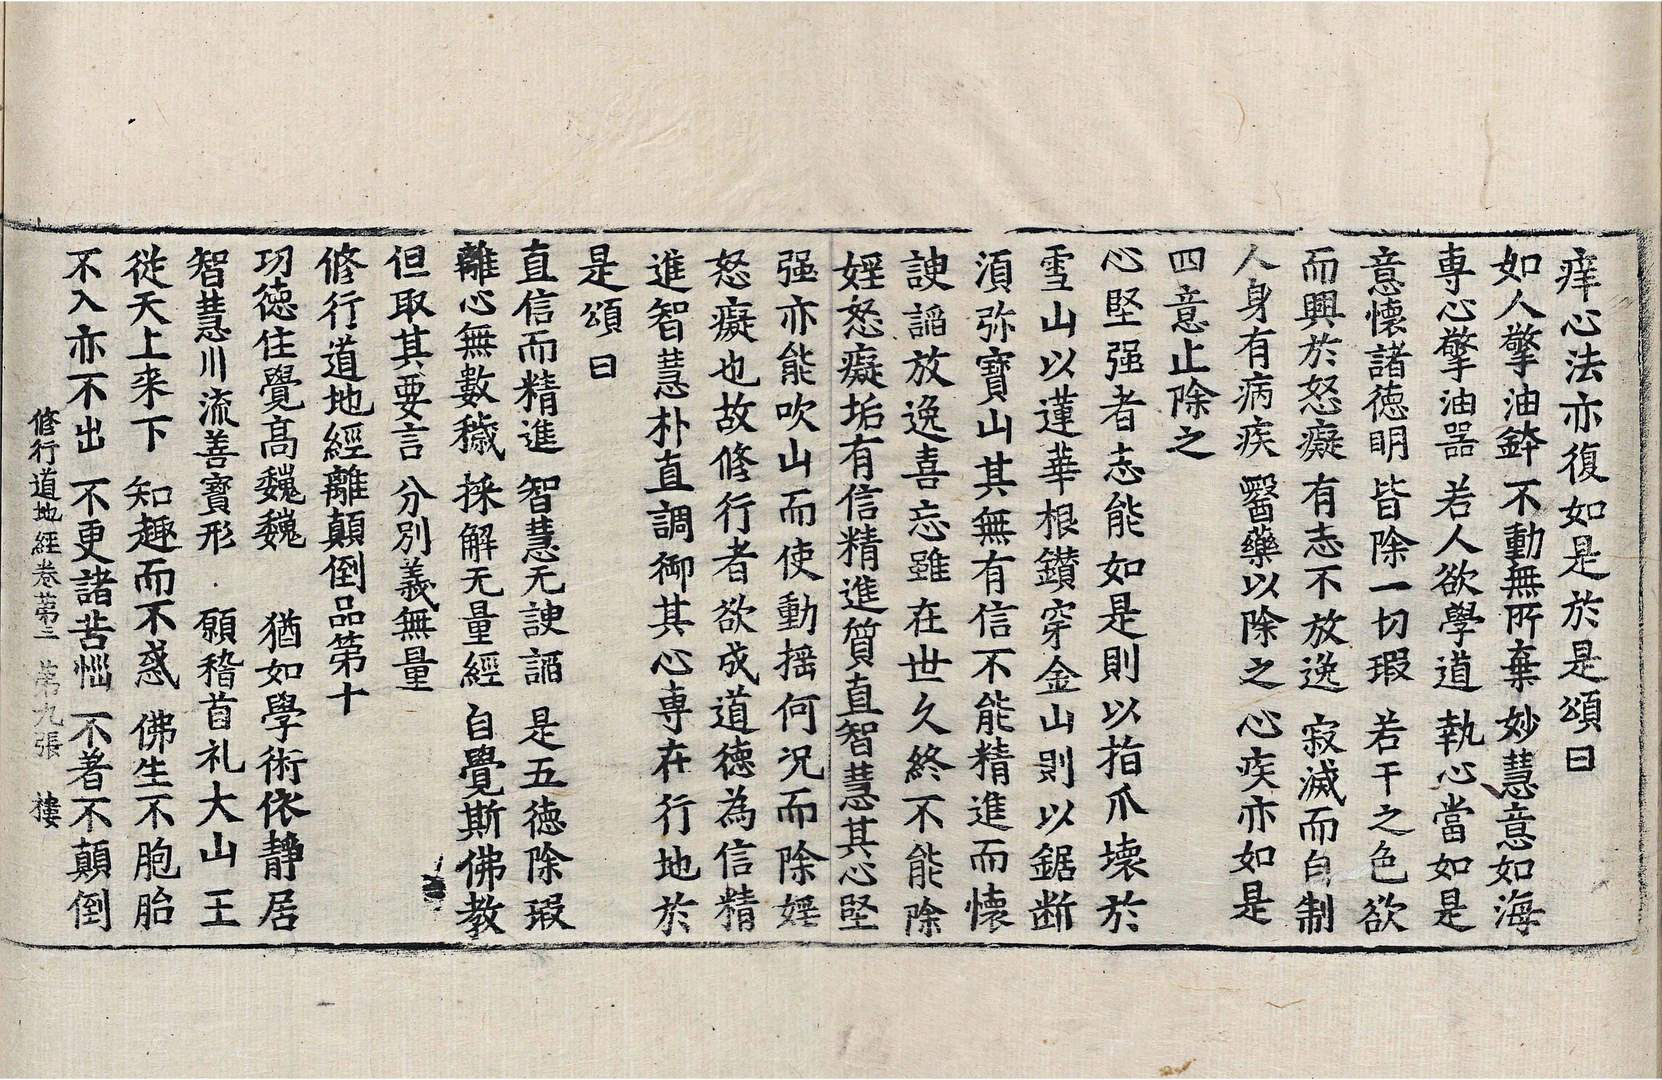 痒心法亦復如是於是頌曰
如人擎油鉢 不動無所棄 妙慧意如海
專心擎油器 若人欲學道 執心當如是
意懷諸德明 皆除一切瑕 若干之色欲
而興於怒癡 有志不放逸 寂滅而自制
人身有病疾 醫藥以除之 心疾亦如是
四意止除之
心堅强者志能如是則以指爪壞於
雪山以蓮華根鑚穿金山則以鋸斷
湏弥寶山其無有信不能精進而懷
諛謟放逸喜忘雖在世久終不能除
婬怒癡垢有信精進質直智慧其心堅
强亦能吹山而使動揺何況而除婬
怒癡也故修行者欲成道德為信精
進智慧朴直調御其心專在行地於
是頌曰
直信而精進 智慧无諛謟 是五德除瑕
離心無數穢 採解无量經 自覺斯佛教
但取其要言 分別義無量
修行道地經離顛倒品第十
功德住覺髙巍巍 猶如學術依靜居
智慧川流善寶形 願稽首礼大山王
從天上来下 知趣而不惑 佛生不胞胎
不入亦不出 不更諸苦惱 不著不顛倒
修行道地經卷第三 第九張 樓